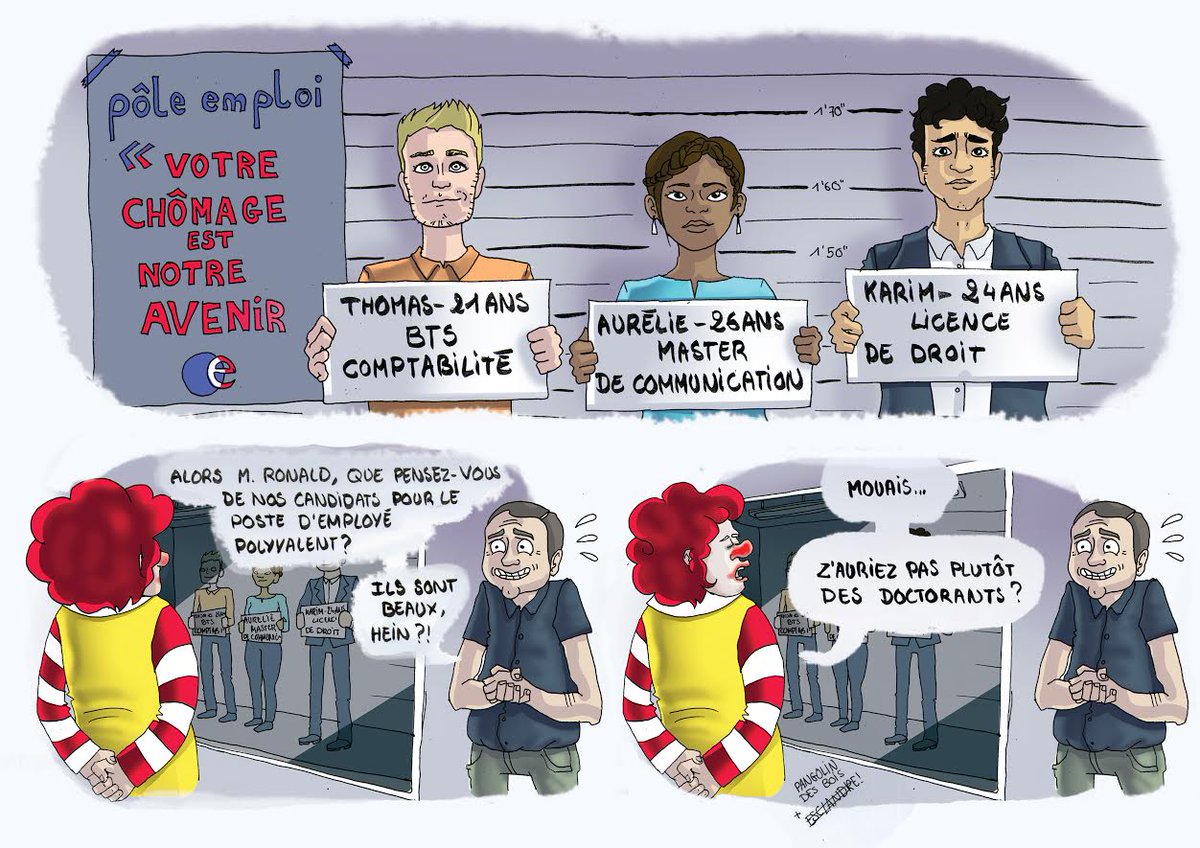 pôle emploi
« VOTRE
CHÔMAGE
EST
NOTRE
AVENIR
1'70"
1'60"
1'50"
THOMAS - 21 ANS
BTS
COMPTABILITÉ
AURÉLIE - 26 ANS
MASTER
DE COMMUNICATION
KARIM - 24 ANS
LICENCE
DE DROIT
ALORS M. RONALD, QUE PENSEZ-VOUS
DE NOS CANDIDATS POUR LE
POSTE D'EMPLOYÉ
POLYVALENT?
ILS SONT
BEAUX,
HEIN?!
BTS
AURÉLIE
MASTER
KARIM - 24 ANS
DE DROIT
MOUAIS...
Z'AURIEZ PAS PLUTÔT
DES DOCTORANTS?
BTS
PANGOLIN
DES BOIS
+ ESCLANDRE!